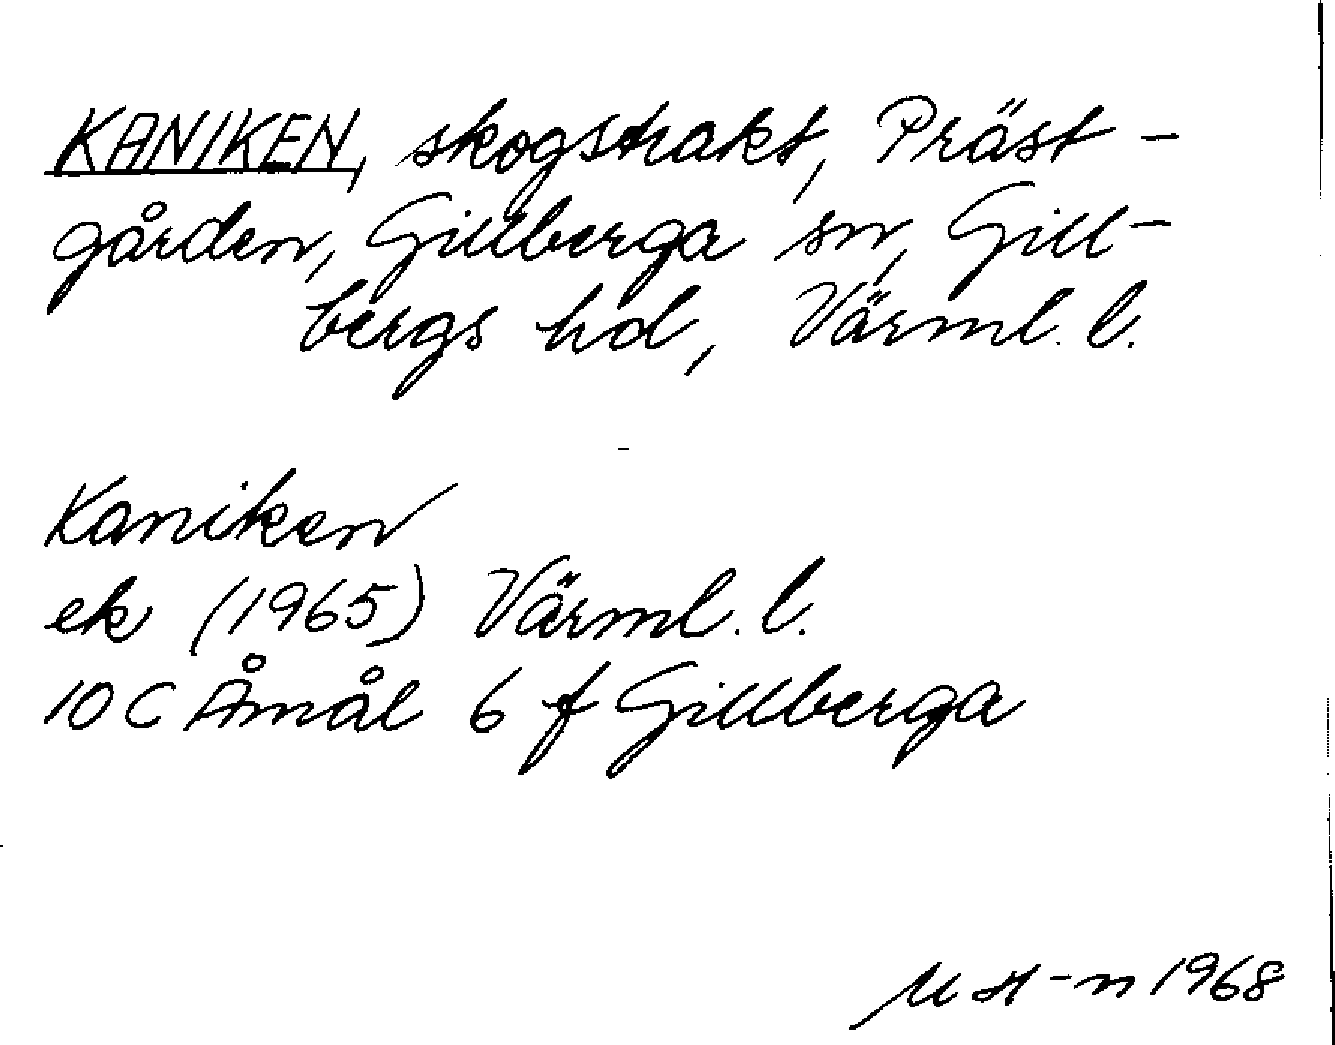 KANIKEN, skogstrakt, Präst-
gården, Gillberga sn, Gill-
bergs hd, Värml. l.
Kaniken
ek (1965) Värml. l.
10 C Åmål 6 f Gillberga
M H-n 1968